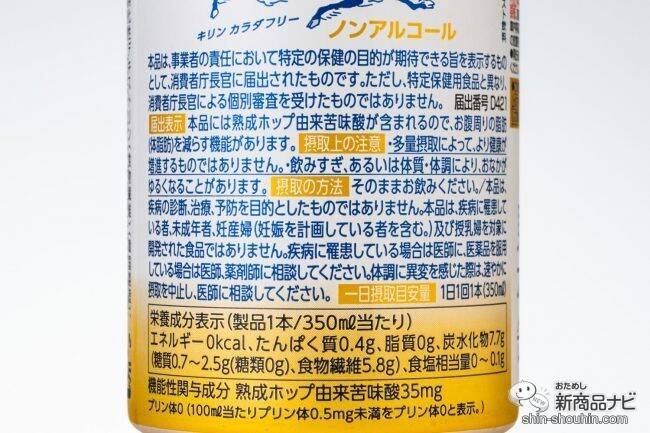 キリン カラダフリー
ノンアルコール
本品は、事業者の責任において特定の保健の目的が期待できる旨を表示するもの
として、消費者庁長官に届出されたものです。ただし、特定保健用食品と異なり、
消費者庁長官による個別審査を受けたものではありません。 届出番号 D421
届出表示 本品には熟成ホップ由来苦味酸が含まれるので、お腹周りの脂肪
(体脂肪)を減らす機能があります。 摂取上の注意 ・多量摂取によって、より健康が
増進するものではありません。・飲みすぎ、あるいは体質・体調により、おなかが
ゆるくなることがあります。 摂取の方法 そのままお飲みください。/本品は、
疾病の診断、治療、予防を目的としたものではありません。本品は、疾病に罹患して
いる者、未成年者、妊産婦(妊娠を計画している者を含む。)及び授乳婦を対象に
開発された食品ではありません。疾病に罹患している場合は医師に、医薬品を服用
している場合は医師、薬剤師に相談してください。体調に異変を感じた際は、速やかに
摂取を中止し、医師に相談してください。 一日摂取目安量 1日1回1本(350ml)
栄養成分表示(製品1本/350ml当たり)
エネルギー0kcal、たんぱく質0.4g、脂質0g、炭水化物7.7g
(糖質0.7〜2.5g(糖類0g)、食物繊維5.8g)、食塩相当量0〜0.1g
機能性関与成分 熟成ホップ由来苦味酸35mg
プリン体0 (100ml当たりプリン体0.5mg未満をプリン体0と表示。)
おためし
新商品ナビ
shin-shouhin.com